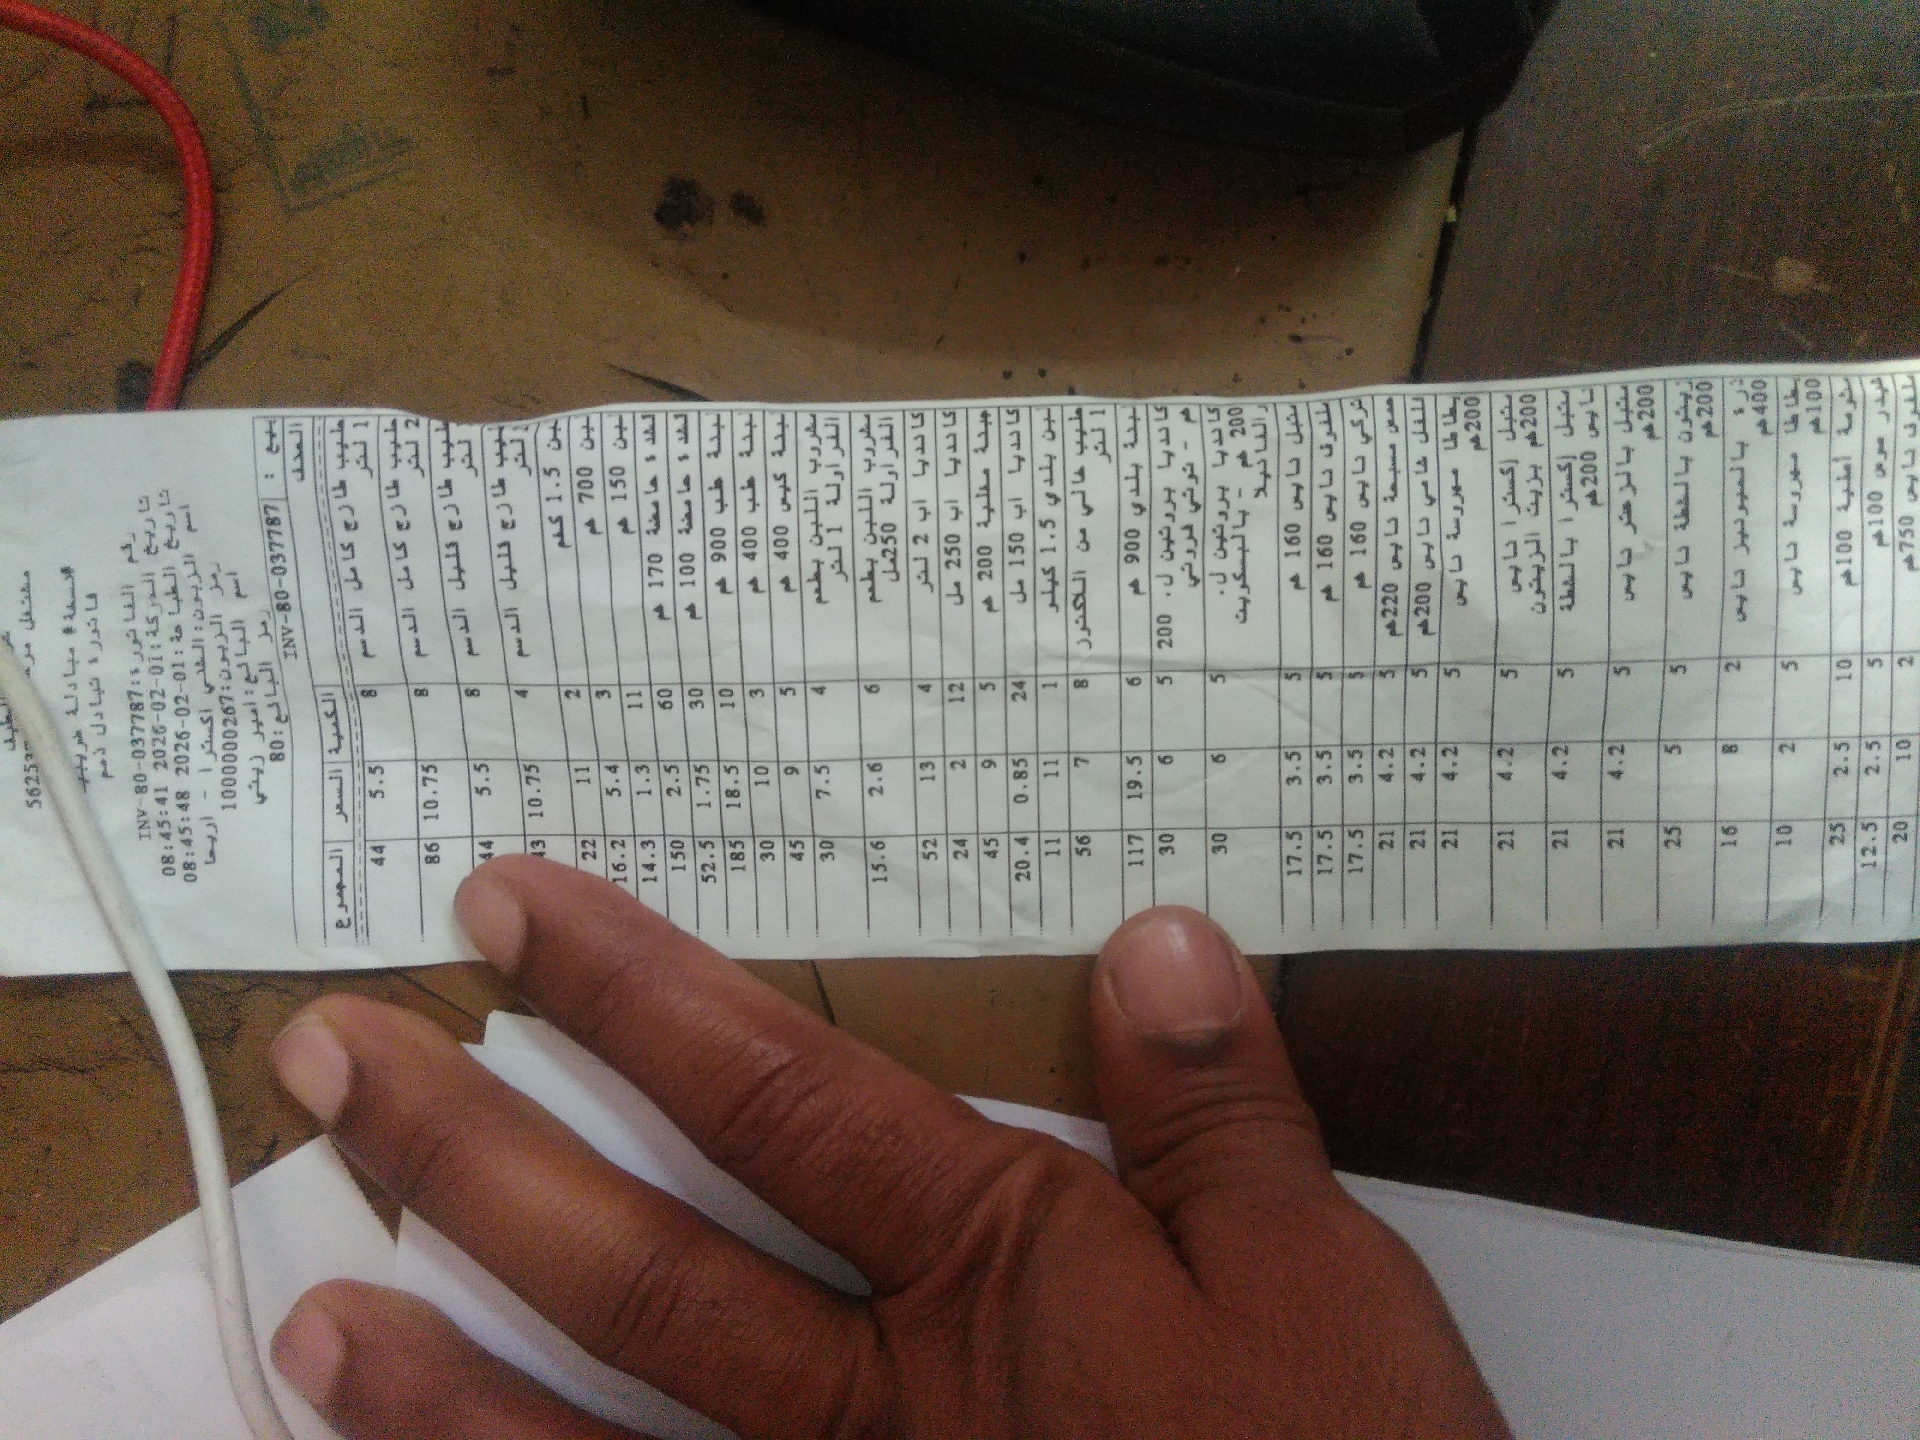 5625
#نسخة مبادلة ضريبية
فاتورة تبادل ذمم
رقم الفاتورة: INV-80-037787
تاريخ الحركة: 2026-02-01 08:45:41
تاريخ الطباعة: 2026-02-01 08:45:48
اسم الزبون: القلبي اكسترا - اريحا
رمز الزبون: 1000000267
اسم البائع: امير زيتي
رمز البائع: 80
بيع : INV-80-037787
الصنف الكمية السعر المجموع
حليب طازج كامل الدسم 8 5.5 44
1 لتر
حليب طازج كامل الدسم 8 10.75 86
2 لتر
حليب طازج قليل الدسم 8 5.5 44
لتر
حليب طازج قليل الدسم 4 10.75 43
لتر
لبن 1.5 كغم 2 11 22
لبن 700 غم 3 5.4 16.2
لبن 150 غم 11 1.3 14.3
قشدة حامضة 170 غم 60 2.5 150
قشدة حامضة 100 غم 30 1.75 52.5
لبنة علب 900 غم 10 18.5 185
لبنة علب 400 غم 3 10 30
لبنة كيس 400 غم 5 9 45
مشروب اللبن بطعم 4 7.5 30
الفراولة 1 لتر
مشروب اللبن بطعم 6 2.6 15.6
الفراولة 250مل
كانديا اب 2 لتر 4 13 52
كانديا اب 250 مل 12 2 24
جبنة مغلية 200 غم 5 9 45
كانديا اب 150 مل 24 0.85 20.4
لبن بلدي 1.5 كيلو 1 11 11
حليب خالي من اللاكتوز 8 7 56
1 لتر
لبنة بلدي 900 غم 6 19.5 117
كانديا بروتين ل. 200 5 6 30
غم - توتي فروتي
كانديا بروتين ل. 5 6 30
200 غم - بالبسكويت
والفانيلا
متبل نايس 160 غم 5 3.5 17.5
ملفوف نايس 160 غم 5 3.5 17.5
تركي نايس 160 غم 5 3.5 17.5
حمص مسبحة نايس 220غم 5 4.2 21
فلفل حامي نايس 200غم 5 4.2 21
بطاطا مهروسة نايس 5 4.2 21
200غم
متبل إكسترا نايس 5 4.2 21
200غم بزيت الزيتون
متبل إكسترا بالشطة 5 4.2 21
نايس 200غم
متبل بالزعتر نايس 5 4.2 21
200غم
زيتون بالشطة نايس 5 5 25
200غم
ذرة بالميونيز نايس 2 8 16
400غم
بطاطا مهروسة نايس 5 2 10
100غم
ثومة أصلية 100غم 10 2.5 25
100غم 5 2.5 12.5
ملفوف نايس 750غم 2 10 20